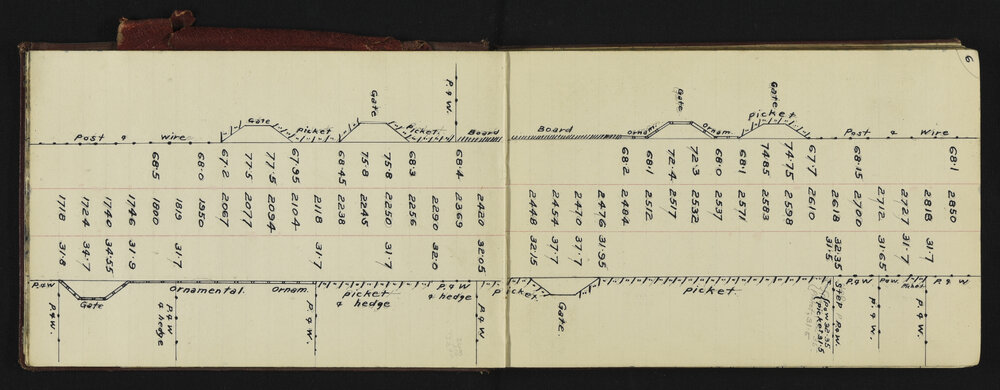 6
P. & W.
Gate
Gate
Gate
Gate
picket
Post & Wire
picket
picket.
Board
Board
ornam.
ornam.
Post & Wire
68.5
68.0
67.2
77.5
77.5
67.95
68.45
75.8
75.8
68.3
68.4
68.2
68.1
72.4
72.3
68.0
68.1
74.85
74.75
67.7
68.15
68.1
1718
1724
1740
1746
1800
1819
1950
2067
2077
2094
2104
2118
2238
2245
2250
2256
2290
2369
2420
2448
2454
2470
2476
2484
2512
2517
2532
2537
2571
2583
2598
2610
2618
2700
2712
2727
2818
2850
31.8
34.7
34.55
31.9
31.7
31.7
31.7
32.0
32.05
32.15
37.7
37.7
31.95
32.35
31.5
31.65
31.7
31.7
P. & W
Gate
ornamental.
ornam.
picket
& hedge
P. & W
& hedge
picket.
Gate.
picket.
STEP
P. & W
P. & W.
picket
P & W
P. & W.
P. & W
& hedge
P. & W.
P. & W.
P&W 32.35
picket 31.5
P. & W.
P. & W.